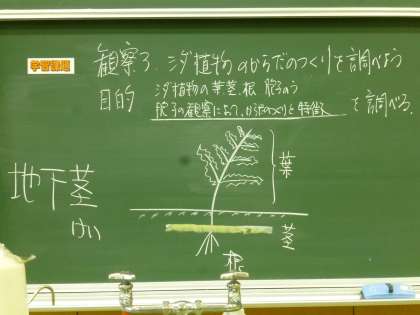 学習課題
観察3. シダ植物のからだのつくりを調べよう
目的
シダ植物の葉、茎、根、胞子のう
胞子の観察によって、からだのつくりと特徴
を調べる.
葉
地下茎
茎
根